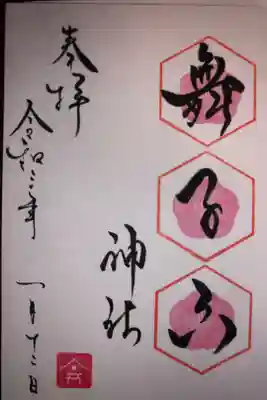 舞子六
神社
奉拝
令和三年
一月十二日